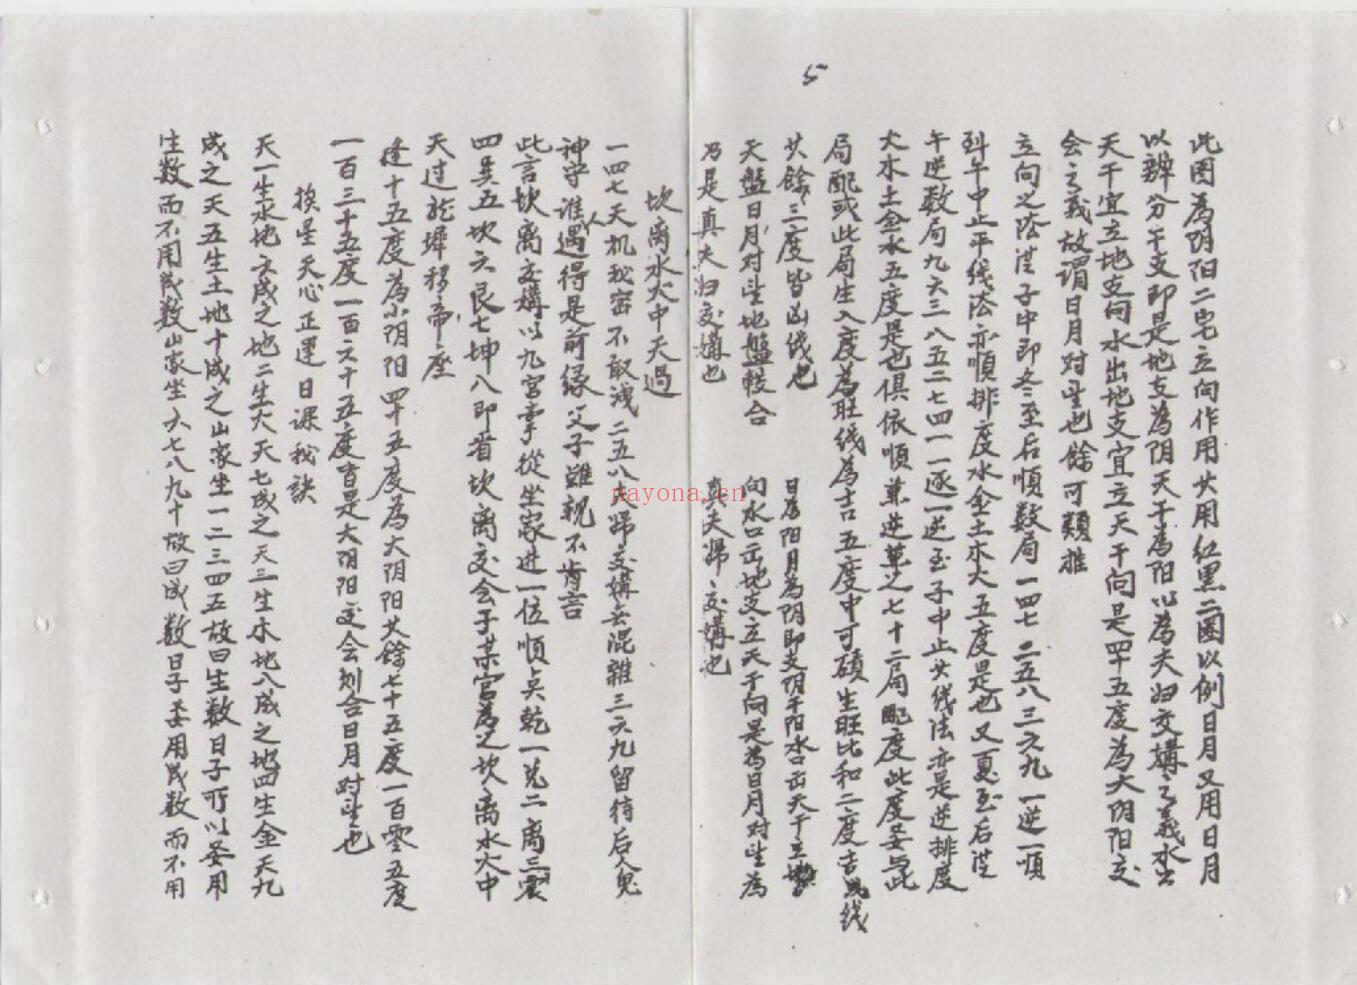 5
此图為阴阳二宅立向作用廿用红黑二圈以例日月又用日月
以辨分干支即是地支為阴天干為阳以為夫妇交媾之義水出
天干宜立地支向水出地支宜立天干向是四十五度為大阴阳交
会之義故謂日月对望也餘可類推
立向之陰從子中即冬至后順数局一四七二五八三六九一逆一順
到午中止平线法亦順排度水金土木火五度是也又夏至后從
午逆数局九六三八五二七四一一逐一逆至子中止廿线法亦是逆排度
火木土金水五度是也俱依順業逆業之七十二局配度此度要与此
局配或此局生入度為旺线為吉五度中可硕生旺比和二度吉线
廿餘三度皆凶线也
日為阳月為阴即支阴干阳水口出天干立地
天盤日月对望地盤較合
向水口出地支立天干向是為日月对望為
乃是真夫妇交媾也
真夫婦交媾也
坎离水火中天過
一四七天机秘密不敢浅二五八夫婦交媾去混雜三六九留待后人鬼
神守谁人遇得是前缘父子雖親不肯言
此言坎离交媾以九宫掌從坐家进一位順点乾一兑二离三震
四巽五坎六艮七坤八即看坎离交会于某宫為之坎离水火中
天过龙墀移帝座
逢十五度為小阴阳四十五度為大阴阳廿餘七十五度一百零五度
一百三十五度一百六十五度育是大阴阳交会刻合日月对望也
挨星天心正運日课秘訣
天一生水地六成之地二生火天七成之天三生木地八成之地四生金天九
成之天五生土地十成之山家坐一二三四五故曰生数日子所以要用
生数而不用成数山家坐六七八九十故曰成数日子要用成数而不用
nayona.cn